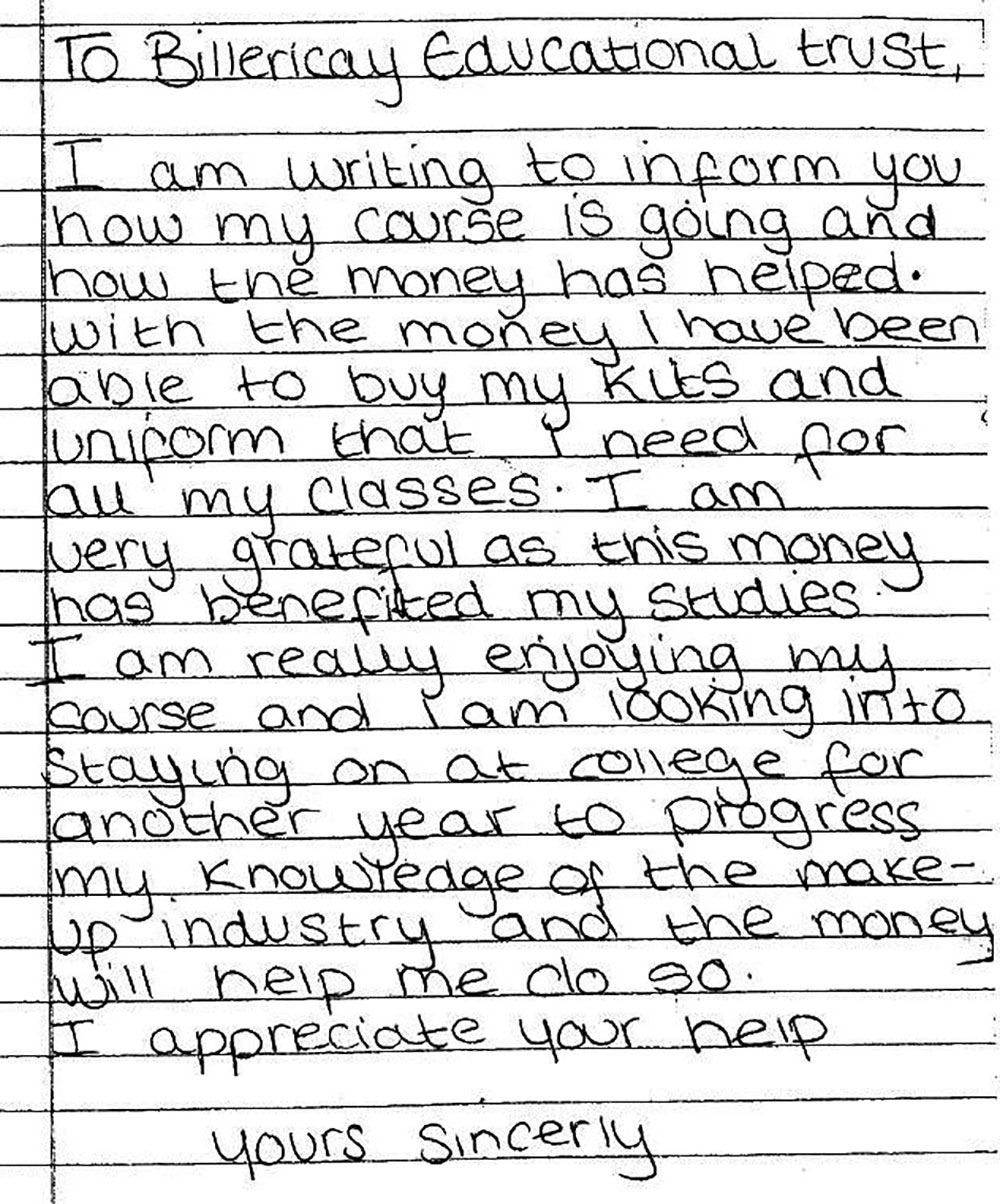 To Billericay Educational trust,
I am writing to inform you
how my course is going and
how the money has helped.
with the money I have been
able to buy my kits and
uniform that I need for
all my classes. I am
very grateful as this money
has benefited my studies.
I am really enjoying my
course and i am looking into
staying on at college for
another year to progress
my knowledge of the make-
up industry and the money
will help me do so.
I appreciate your help
yours sincerly